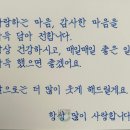 사랑하는 마음, 감사한 마음을
가득 담아 전합니다.
항상 건강하시고, 매일매일 좋은 일
가득 했으면 좋겠어요.
앞으로는 더 많이 웃게 해드릴게요.
항상 많이 사랑합니다